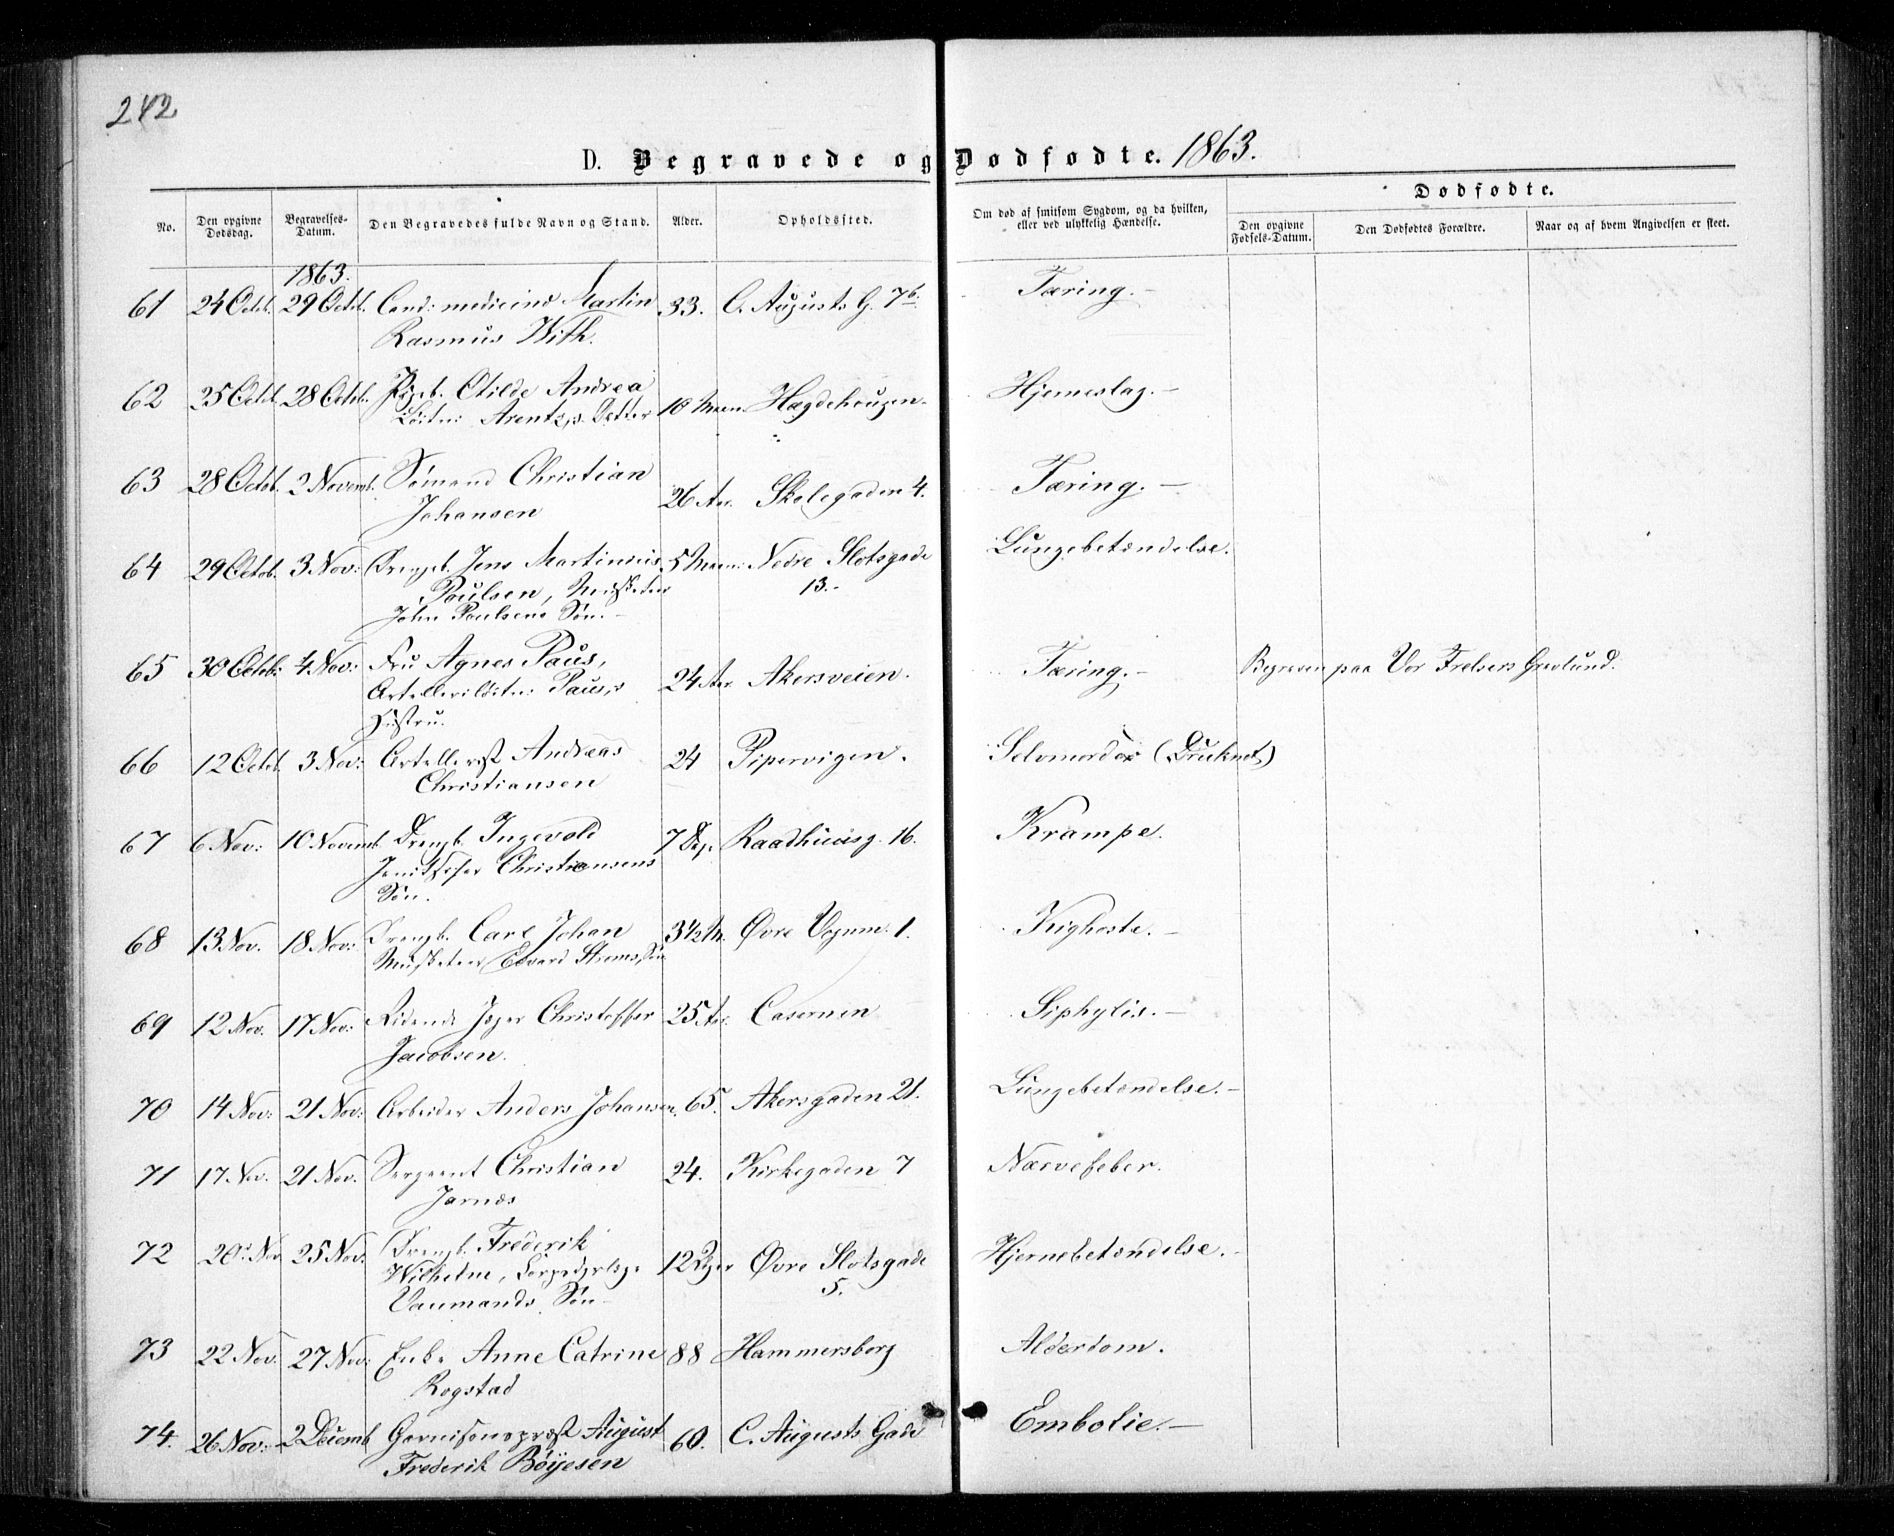 242
D. Begravede og Dødfødte. 1863.
No. Den opgivne Dødsdag. Begravelses-Datum. Den Begravedes fulde Navn og Stand. Alder. Opholdssted. Om død af smitsom Sygdom, og da hvilken, eller ved ulykkelig Hændelse. Dødfødte.
Den opgivne Fødsels-Datum. Den Dødfødtes Forældre. Naar og af hvem Angivelsen er skeet.
1863.
61 24 Octb. 29 Octb. Cand: medicinæ Martin 33. C. Augusts G. 7b. Tæring.-
Rasmus With.
62 25 Octb. 28 Octb. Pigeb. Otilde Andrea 10 Maan. Hægdehougen. Hjerneslag.-
Løitn: Arentz's Datter
63 28 Octob. 2 Novemb. Sömand Christian 26 Aar. Skolegaden 4. Tæring.-
Johansen
64 29 Octob. 3 Nov: Drengeb. Jens Martinius 5 Maan: Nedre Slotsgade Lungebetændelse.
Poulsen, Musketeer 13.-
John Poulsens Søn.-
65 30 Octob: 4 Nov: Fru Agnes Paus, 24 Aar Akersveien. Tæring.- Begraven paa Vor Frelsers Gravlund.
Artilleriløitn: Paus's
Hustru.
66 12 Octob. 3 Nov: Artillerist Andreas 24 Pipervigen. Selvmorder (Druknet)
Christiansen
67 6 Nov: 10 Novemb. Drengb. Ingevald 7 Dg. Raadhuusg. 16. Krampe.
Christiansens
Søn.
68 13 Nov. 18 Nov: Drengb. Carl Johan 3½ M. Øvre Vognm. 1. Kighoste.-
Musketeer Edvard Strøms Søn
69 12 Nov. 17 Nov: Ridende Jæger Christoffer 25 Aar. Casernen Siphylis.-
Jacobsen.
70 14 Nov: 21 Nov: Arbeider Anders Johansen. 65. Akersgaden 21. Lungebetændelse.-
71 17 Nov. 21 Nov. Sergeant Christian 24. Kirkegaden 7 Nærvefeber.
Jarnæs
72 20 Nov 25 Nov. Drengb. Frederik 12 Øvre Slotsgade Hjernebetændelse.-
Wilhelm, 5.
Vaumands Søn-
73 22 Nov. 27 Nov: Enke Anne Catrine 88 Hammersborg Alderdom.
Rogstad
74. 26 Nov: 2 Decemb. Garnisonspræst August 60. C. Augusts Gade Embolie.-
Frederik Böyesen